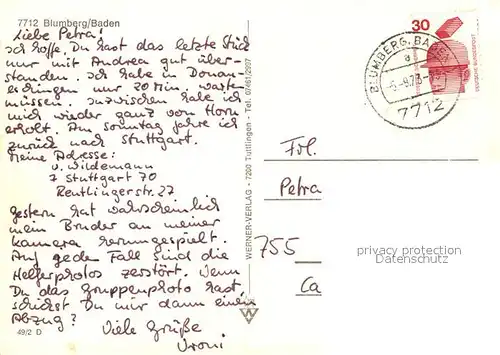 7712 Blumberg/Baden
Liebe Petra!
Ich hoffe, Du hast das letzte Stück
nur mit Andrea gut über-
standen. Ich habe in Donau-
eschingen nur 20 Min. warten
müssen. Inzwischen habe ich
mich wieder ganz von Horn
erholt. Am Sonntag fahre ich
zurück nach Stuttgart.
Meine Adresse:
v. Wildemann
7 Stuttgart 70
Reutlingerstr. 27
Gestern hat wahrscheinlich
mein Bruder an meiner
Kamera herumgespielt.
Auf jeden Fall sind die
Helferphotos zerstört. Wenn
Du das Gruppenphoto hast,
schickst Du mir dann einen
Abzug?
Viele Grüße
Vroni
49/2 D
WERNER-VERLAG - 7200 Tuttlingen - Tel. 07461/2697
30
DEUTSCHE BUNDESPOST
BLUMBERG, BADEN
a
7712
Frl.
Petra
755
Ca
privacy protection
Datenschutz